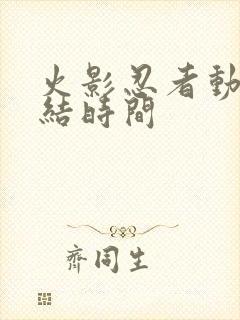 火影忍者動
結時間
齊同生